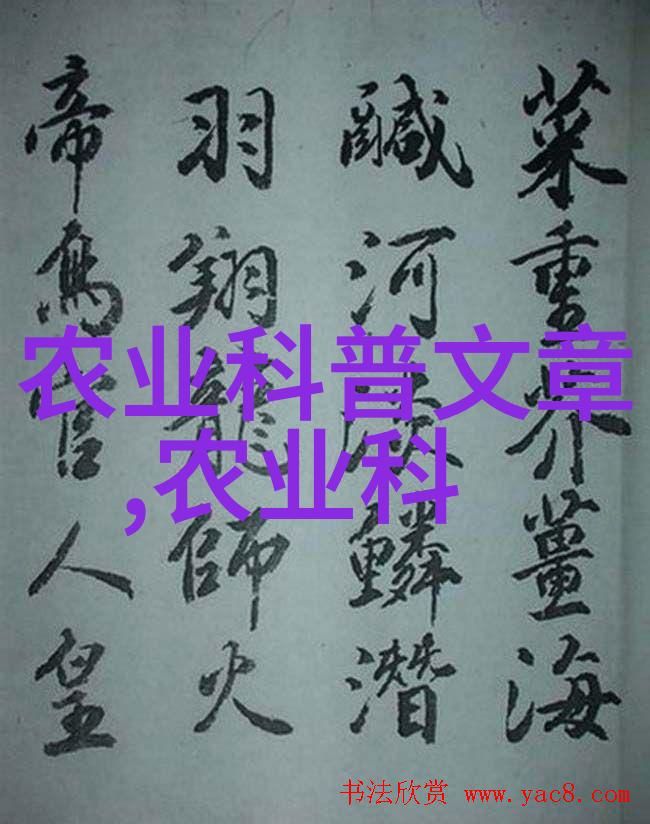 菜重芥薑海
鹹河淡鱗潛
羽翔龍師火
帝鳥官人皇
农业科普文章
,农业科
书法欣赏 www.yac8.com